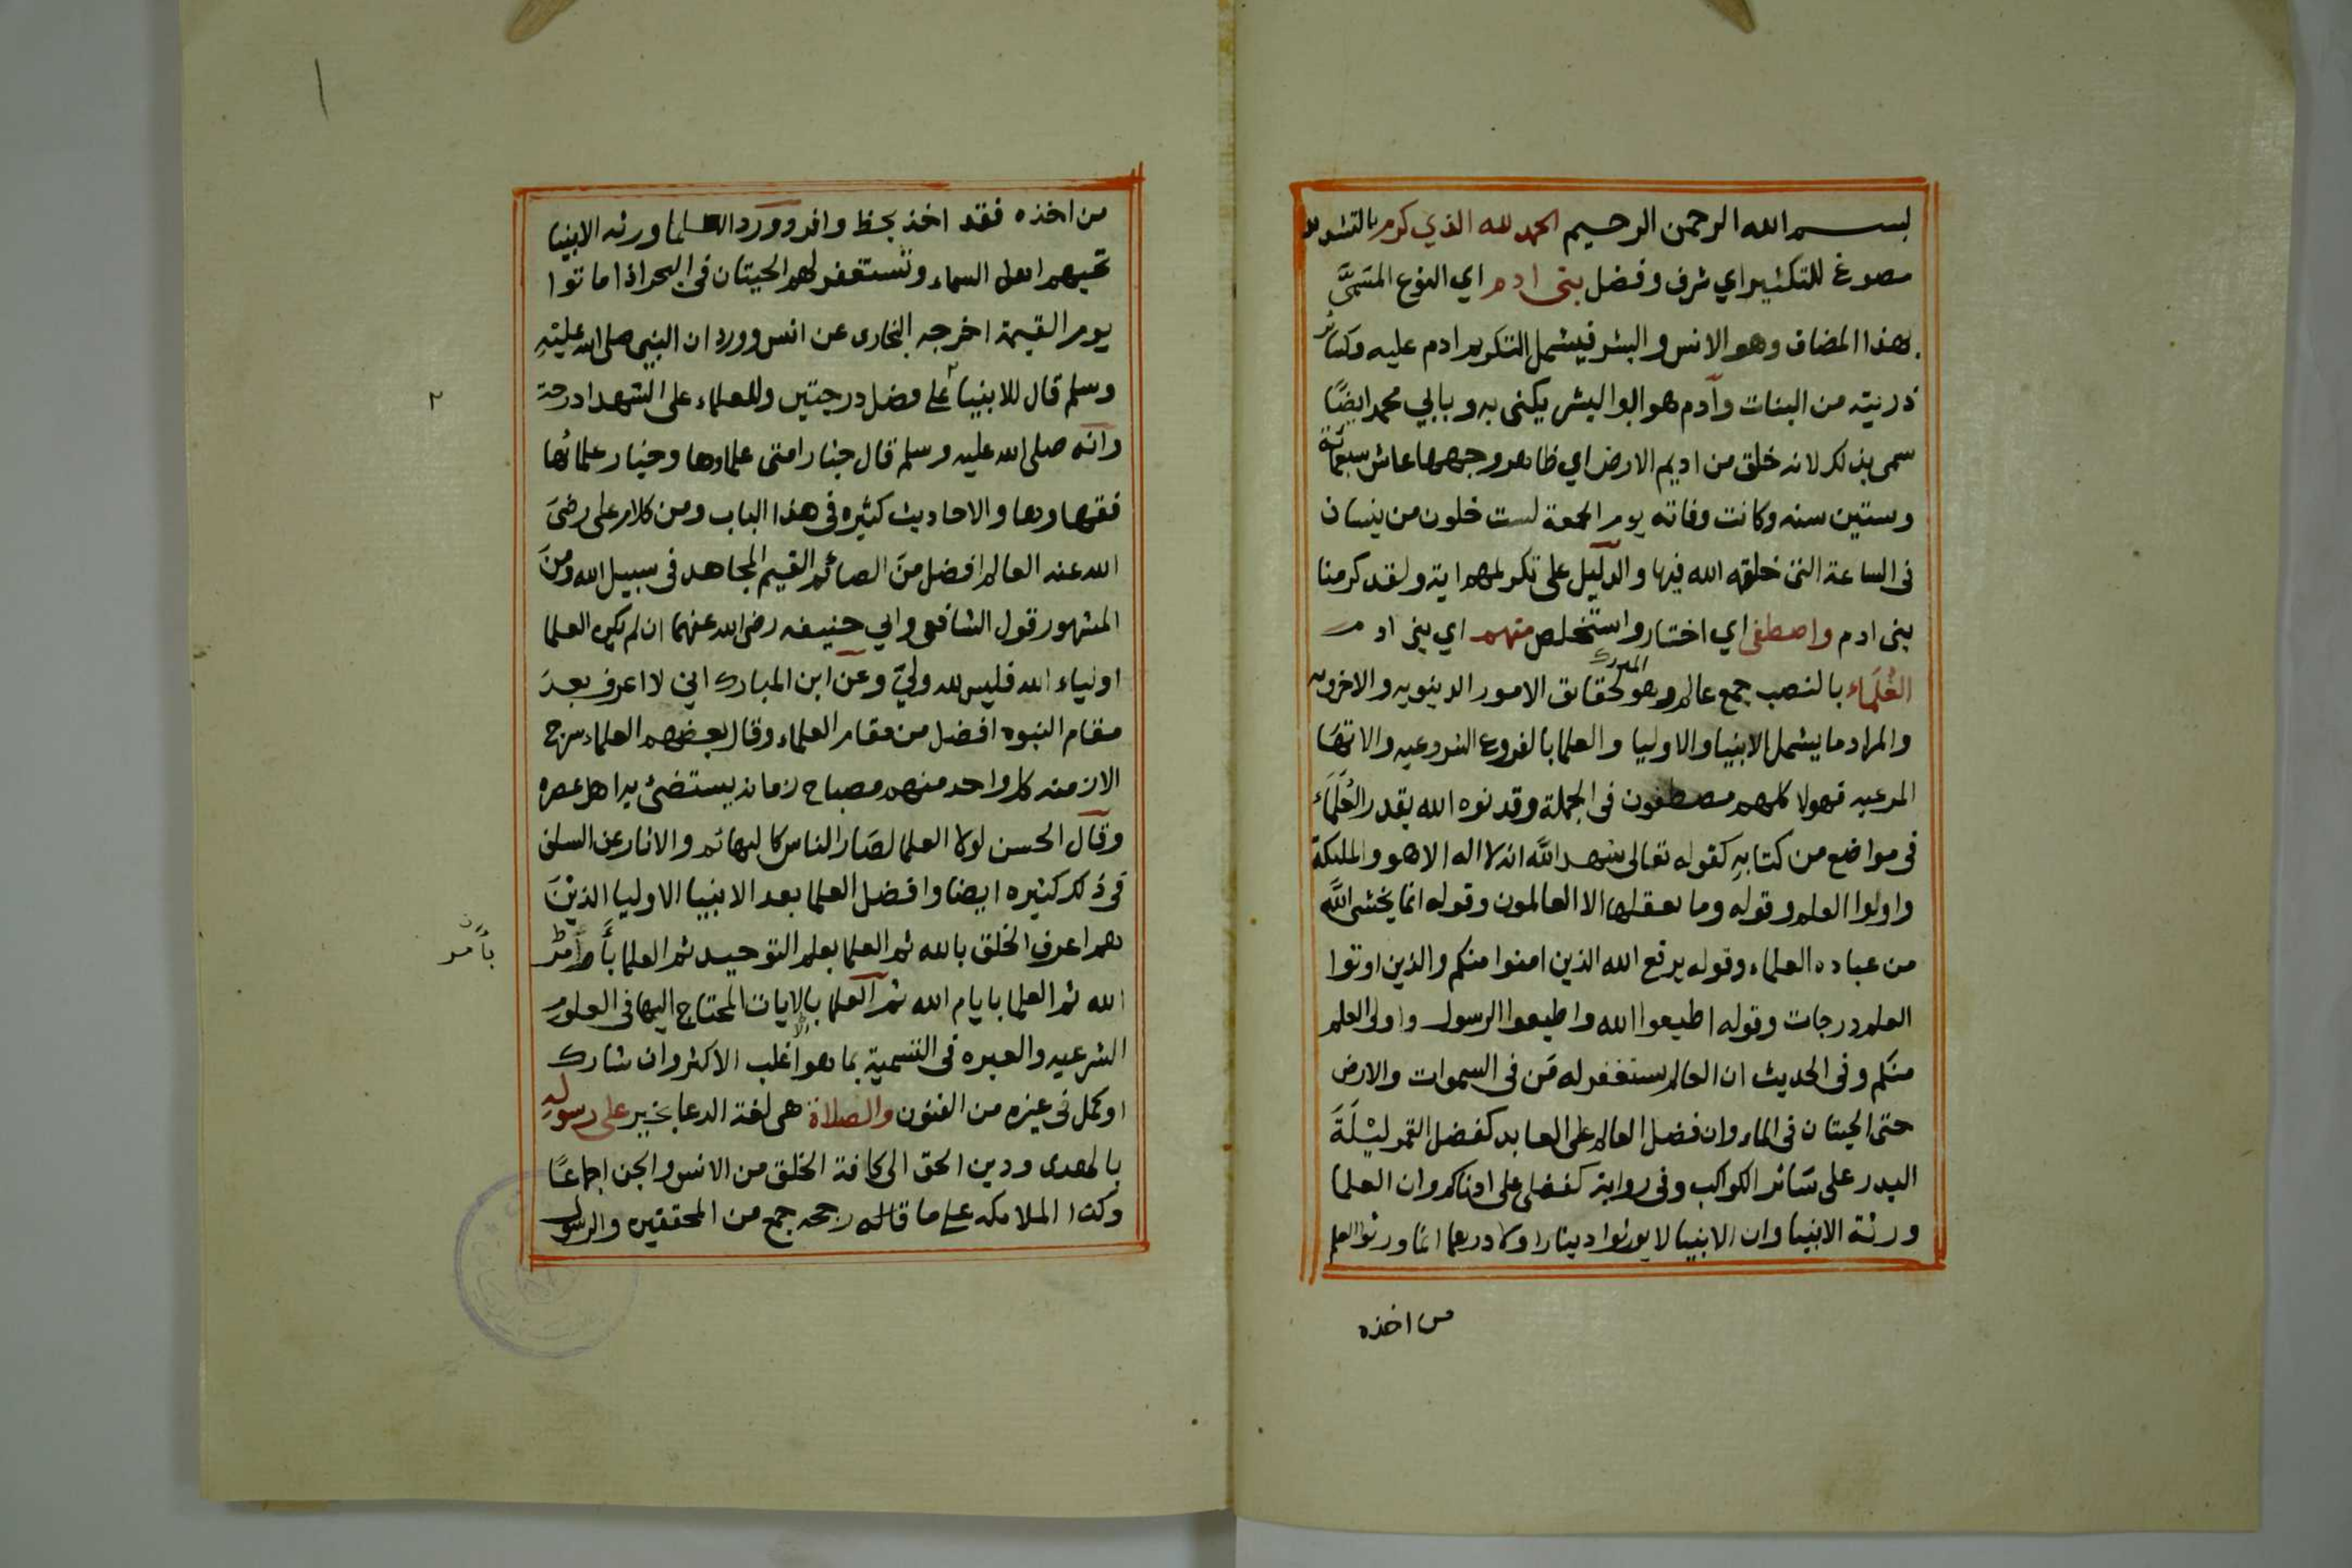 بســـم الله الرحمن الرحيم الحمد لله الذي كرم بالتشديد
مصوغ للتكثير اي شرف وفضل بنى ادم اي النوع المسمَّى
بهذا المضاف وهو الانس والبشر فيشمل التكريم ادم عليه وكساير
ذريته من البنات وآدم هو ابو البشر يكنى به وبابي محمد ايضًا
سمى بذلك لانه خلق من اديم الارض اي ظاهر وجهها عاش سبعمائة
وستين سنه وكانت وفاته يوم الجمعة لست خلون من نيسان
فى الساعة التى خلقه الله فيها والدليل على تكريمهم اية ولقد كرمنا
بنى ادم واصطفى اي اختار واستخلص منهم اي بنى ادم
العُلَمَاء بالنصب جمع عالم وهو المدرك لحقايق الامور الدينويه والاخرويه
والمراد ما يشمل الانبيا والاوليا والعلما بالفروع الشرعيه والاتها
المرعيه فهولا كلهم مصطفون فى الجملة وقد نوه الله بقدر العُلَمَاء
فى مواضع من كتابهِ كقوله تعالى شهد اللَّه انه لا اله الا هو والمليكة
واولوا العلم وقوله وما يعقلها الا العالمون وقوله انما يخشى اللَّه
من عباده العلماء وقوله يرفع الله الذين امنوا منكم والذين اوتوا
العلم درجات وقوله اطيعوا الله واطيعوا الرسول واولى العلم
منكم وفى الحديث ان العالم يستغفر له مَن فى السموات والارض
حتى الحيتان فى الماء وان فضل العالم على العابد كفضل القمر ليْلَةَ
البدر على سَائر الكواكب وفى رواية كفضلى على ادناكم وان العلما
ورثة الانبيا وان الانبيا لا يورثوا دينارا ولا درهما انما ورثوا العلم
من اخذه
من اخذه فقد اخذ بحظ وافر وورد العلما ورثه الانبيا
تحبهم اهل السماء وتستغفر لهم الحيتان فى البحر اذا ماتوا
يوم القيمة اخرجه البخارى عن انس وورد ان النبى صلى الله عليْهِ
وسلم قال للانبيا على فضل درجتين وللعلماء على الشهدا درجة
٢
وانه صلى الله عليه وسلم قال خيار امتى علماوها وخيار علمائها
فقهاوها والاحاديث كثيره فى هذا الباب ومن كلام على رضىَ
الله عنه العالم افضل منَ الصائم القيم المجاهد فى سبيل الله ومنَ
المشهور قول الشافعى وابى حنيفه رضى الله عنهما ان لم يكن العلما
اولياء الله فليس لله وليّ وعن ابن المبارك انى لا اعرف بعدَ
مقام النبوه افضل من مقام العلماء وقال بعضهم العلماء سرج
الازمنه كل واحد منهم مصباح زمانه يستضئ به اهل عصره
وقال الحسن لولا العلما لصَار الناس كالبهائم والاثار عن السلف
فى ذلك كثيره ايضا وافضل العلما بعد الانبيا الاوليا الذيْنَ
هم اعرف الخلق بالله ثم العلما بعلم التوحيد ثم العلما
بأمر
الله ثم العلما بايام الله ثم العلما بالايات المحتاج اليها فى العلوم
الشرعيه والعبره فى التسمية بما هو اغلب الاكثر وان شارك
اوكمل فى غيره من الفنون والصلاة هى لغة الدعا بخير على رسولهِ
بالهدى ودين الحق الى كافة الخلق من الانس والجن اجماعًا
وكذا الملائكه على ما قاله رجحه جمع من المحققين والرسول